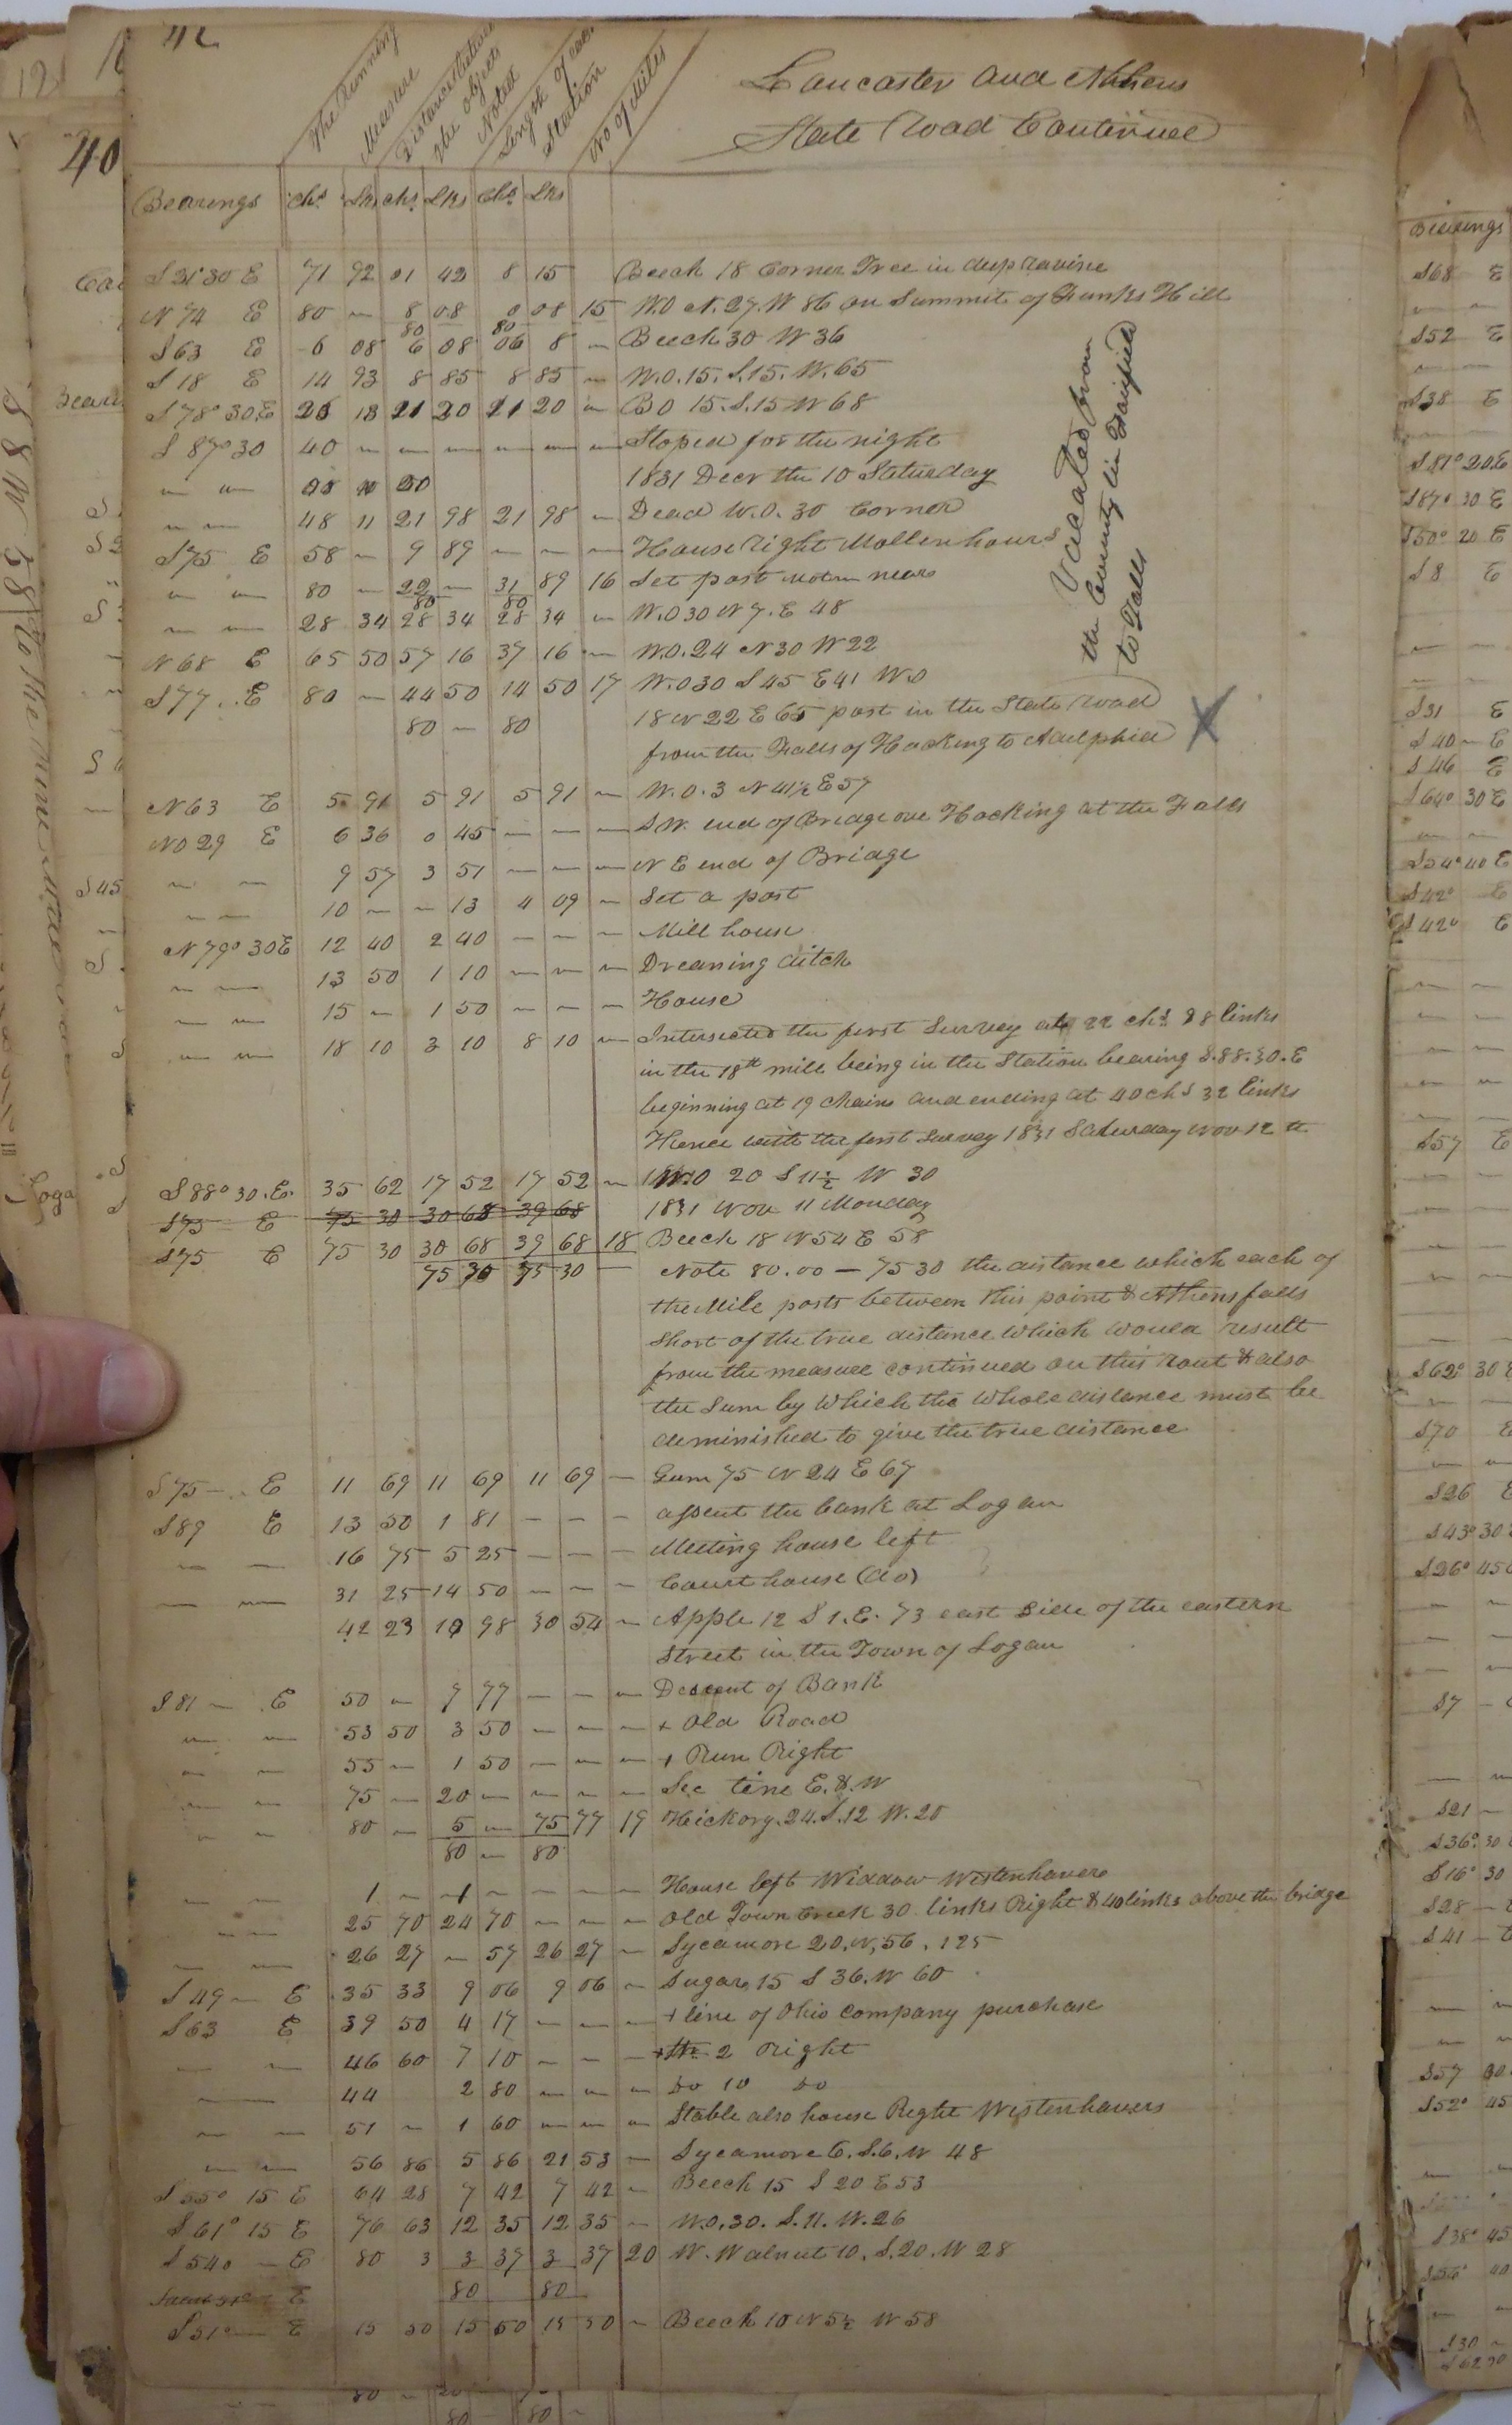 42
Lancaster and Athens
State Road Continued
The Running Measure
Distance between the objects Noted
Length of each Station
No of Miles
Bearings Chs Lks Chs Lks Chs Lks
S 31° 30 E 71 92 01 42 8 15 Beech 18 Corner Tree in deep ravine
N 74 E 80 — 8 08 0 08 15 W.O N. 27. W 86 on Summit of Funks Hill
80 80
S 63 E 6 08 6 08 06 8 — Beech 30 W 36
S 18 E 14 93 8 85 8 85 — W.O. 15. S. 15. W. 65
S 78° 30 E 18 21 20 21 20 — B O 15. S. 15 W 68
S 87° 30 40 — — — — — — Stoped for the night
1831 Decr the 10 Saturday
— — 48 11 21 98 21 98 — Dead W.O. 30 Corner
S 75 E 58 — 9 89 — — — House right Mollenhours
— — 80 — 22 — 31 89 16 Set post no tree near
80 80
— — 28 34 28 34 28 34 — W.O 30 N 7. E 48
N 68 E 65 50 57 16 37 16 — W.O. 24 N 30 W 22
S 77 E 80 — 44 50 14 50 17 W.O 30 S 45 E 41 W.O
80 — 80 18 N 22 E 65 post in the State Road
from the Falls of Hocking to Adelphia X
Vacated from
the County line Fairfield
to Falls
N 63 E 5 91 5 91 5 91 — W.O. 3 N 41½ E 57
N 29 E 6 36 0 45 — — — S W. end of Bridge over Hocking at the Falls
— — 9 57 3 51 — — — N E end of Bridge
— — 10 — — 13 4 09 — Set a post
N 79° 30 E 12 40 2 40 — — — Mill house
— — 13 50 1 10 — — — Dreaning ditch
— — 15 — 1 50 — — — House
— — 18 10 3 10 8 10 — Intersected the first Survey at 22 chs 88 links
in the 18th mile being in the Station bearing S. 88. 30. E
beginning at 19 chains and ending at 40 chs 32 links
Hence with the first Survey 1831 Saturday Nov 12th
S 88° 30. E. 35 62 17 52 17 52 — W.O 20 S 11½ W 30
S 75 E 75 30 30 68 39 68 1831 Nov 11 Monday
S 75 E 75 30 30 68 39 68 18 Beech 18 N 54 E 58
75 30 75 30 — Note 80.00 — 75 30 the distance which each of
the Mile posts between this point & Athens falls
short of the true distance which would result
from the measure continued on this rout & also
the Sum by which the whole distance must be
deminished to give the true distance
S 75 — E 11 69 11 69 11 69 — Gum 75 N 24 E 67
S 89 E 13 50 1 81 — — — assent the bank at Logan
— — 16 75 5 25 — — — Meeting house left
— — 31 25 14 50 — — — Court house (do)
42 23 10 98 30 54 — Apple 12 S 1. E. 73 east side of the eastern
street in the Town of Logan
S 81 — E 50 — 7 77 — — — Descent of Bank
— — 53 50 3 50 — — — + Old Road
— — 55 — 1 50 — — — + Run Right
— — 75 — 20 — — — — Sec line E. & W
— — 80 — 5 — 75 77 19 Hickory. 24. S. 12 W. 20
80 — 80
— — 1 — 1 — — — — House left Widdow Westenhavers
— — 25 70 24 70 — — — Old Town Creek 30 links Right & 40 links above the bridge
— — 26 27 — 57 26 27 — Sycamore 20. N, 56. 125
S 49 — E 35 33 9 06 9 06 — Sugar 15 S 36. W 60
S 63 E 39 50 4 17 — — — + line of Ohio Company purchase
— — 46 60 7 10 — — — 2 Right
— — 44 2 80 — — — Do 10 Do
— — 51 — 1 60 — — — Stable also house Right Westenhavers
— — 56 86 5 86 21 53 — Sycamore 6. S. 6. W 48
S 55° 15 E 64 28 7 42 7 42 — Beech 15 S 20 E 53
S 61° 15 E 76 63 12 35 12 35 — W.O. 30. S. 11. W. 26
S 54° — E 80 3 3 37 3 37 20 W. Walnut 10. S. 20. W 28
80 80
S 51° — E 15 50 15 50 15 50 — Beech 10 N 5½ W 58
40
Bearings
S 68 E
S 52 E
S 38 E
S 81° 20 E
S 87° 30 E
S 50° 20 E
S 8 E
S 31 E
S 40 — E
S 46 E
S 64° 30 E
S 54° 40 E
S 42° E
S 42° E
S 57 E
S 62° 30
S 70
S 26
S 43° 30
S 26° 45
S 7
S 21 —
S 36° 30
S 16° 30
S 28 —
S 41 —
S 57 30
S 52° 45
S 38° 45
S 30